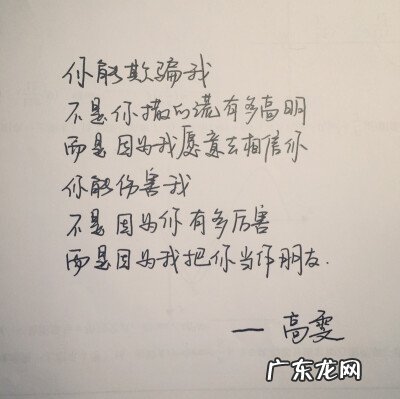 你能欺骗我
不是你撒的谎有多高明
而是因为我愿意去相信你
你能伤害我
不是因为你有多厉害
而是因为我把你当作朋友.
一高雯
广东龙网